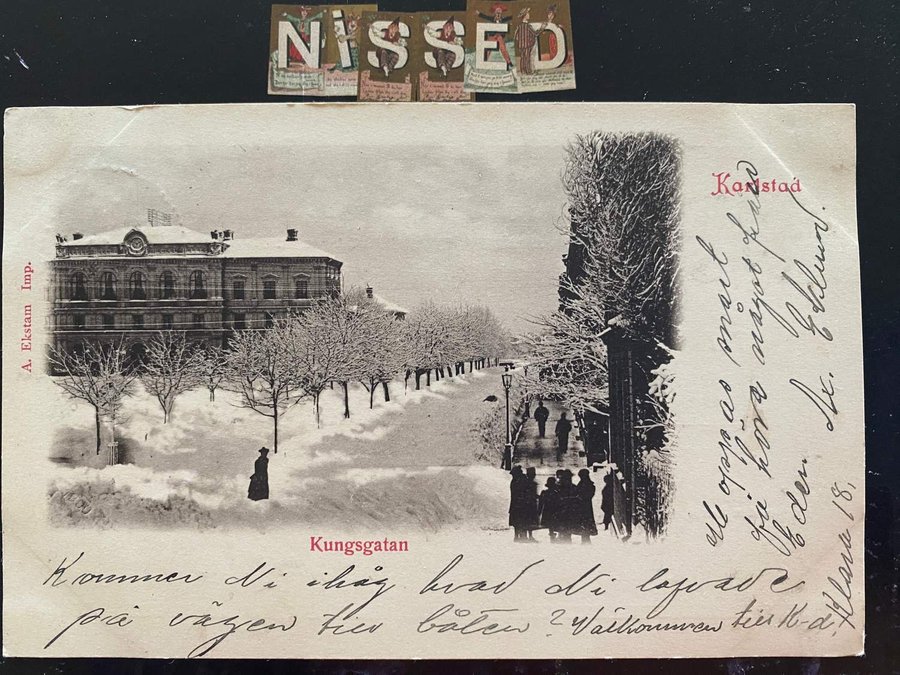 NiSSED
Karlstad
A. Ekstam Imp.
Kungsgatan
Kommer Ni ihåg hvad Ni lofvade
på vägen till båten? Välkommen till K-d.
Hoppas snart
få höra något från
Eder. Ax. Eklund.
Klara 18.